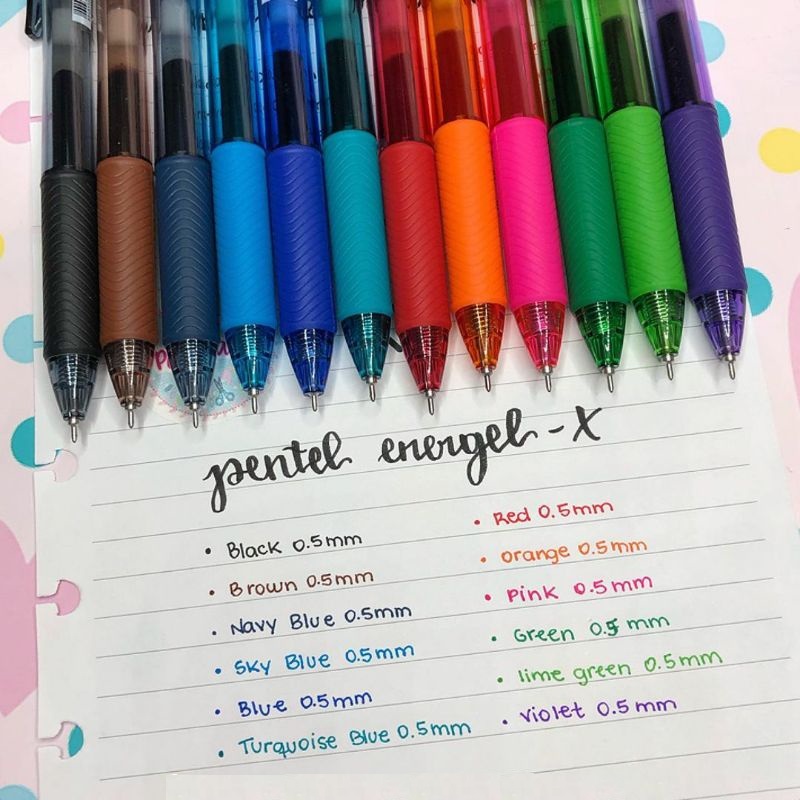 pentel energel-X
• Black 0.5mm
• Brown 0.5mm
• Navy Blue 0.5mm
• Sky Blue 0.5mm
• Blue 0.5mm
• Turquoise Blue 0.5mm
• Red 0.5mm
• orange 0.5mm
• Pink 0.5mm
• Green 0.5 mm
• lime green 0.5mm
• violet 0.5mm